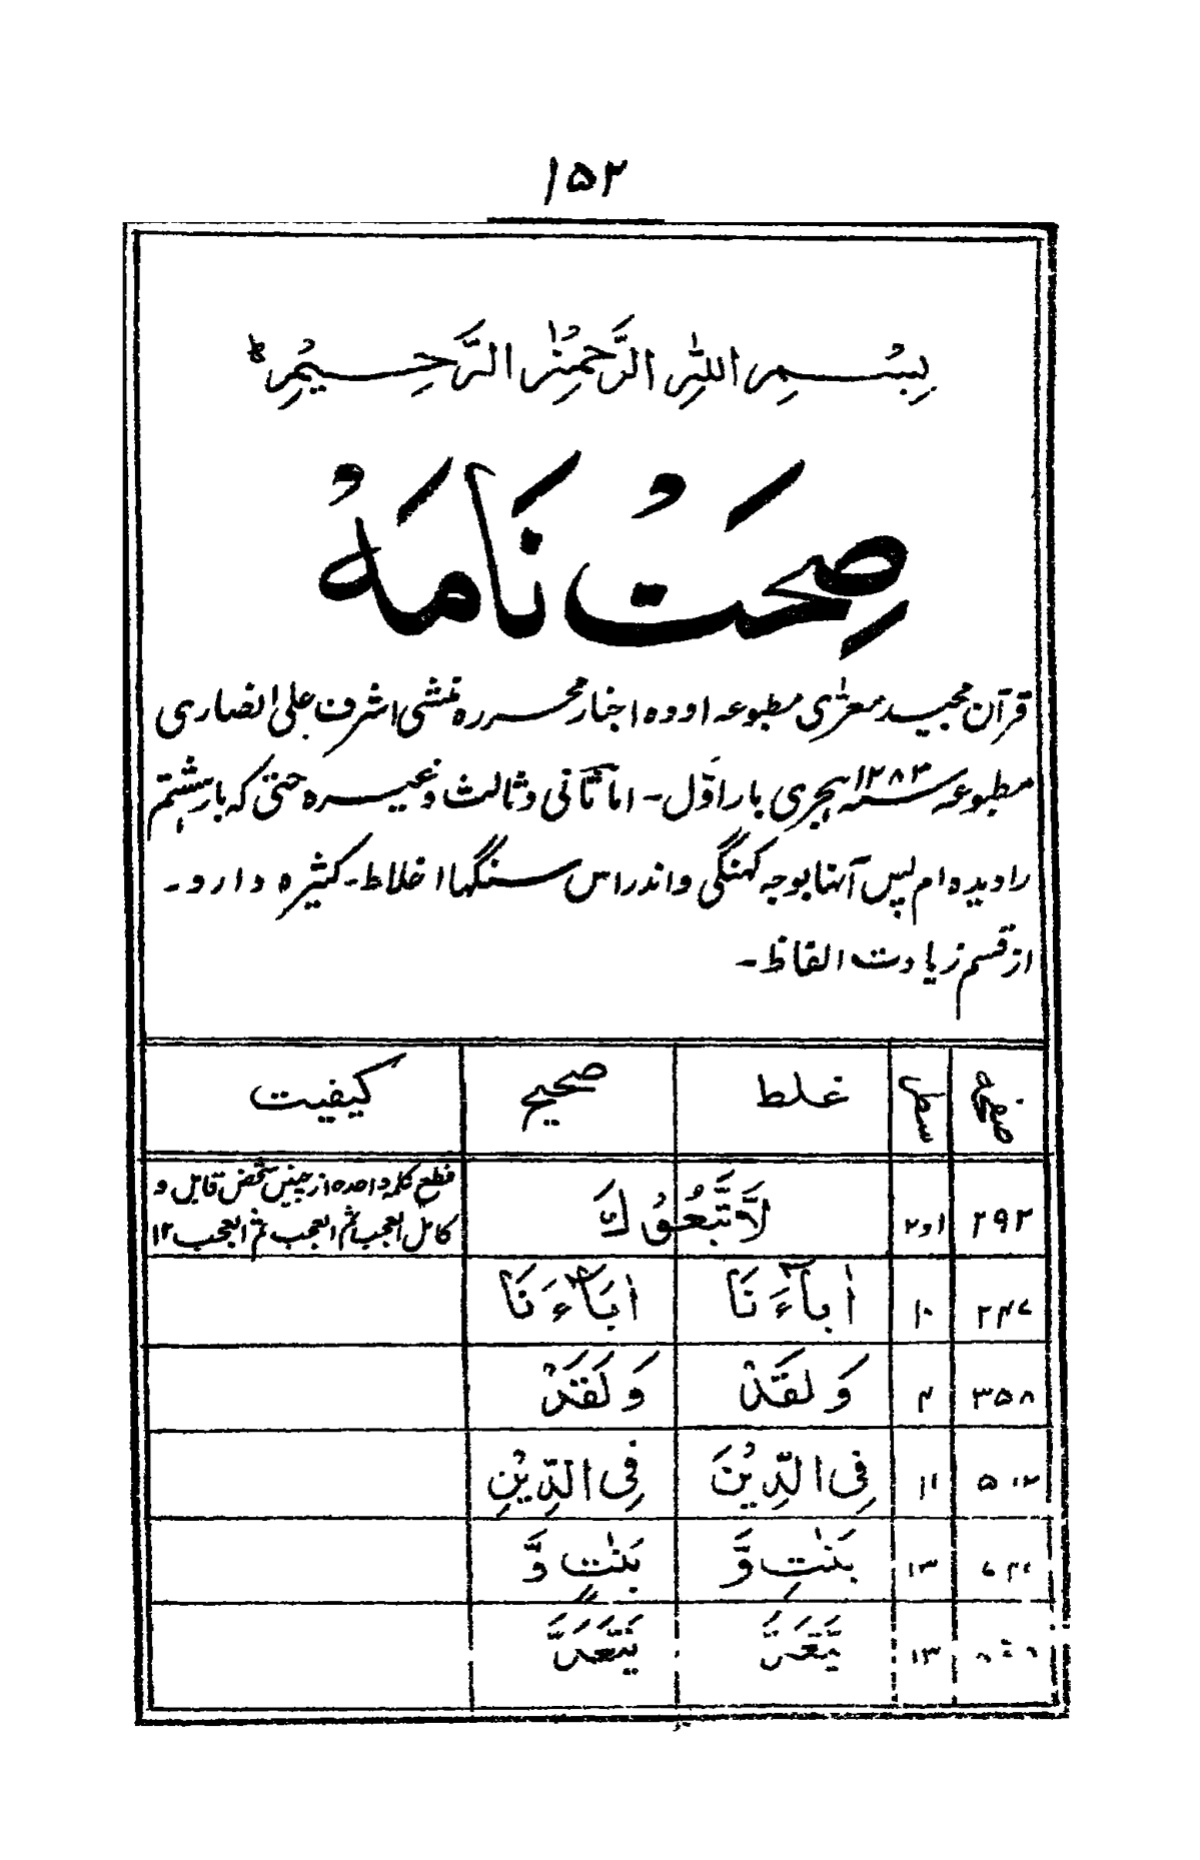 ۱۵۲
بِسْمِ اللهِ الرَّحْمٰنِ الرَّحِیْمِ ط
صِحَتْ نَامَهْ
قرآن مجید معرّٰی مطبوعہ اودہ اخبار محررہ منشی اشرف علی انصاری
مطبوعہ سنہ ۱۲۸۳ ہجری بار اوّل ۔ اما ثانی و ثالث وغیرہ حتی کہ بار ہشتم
را دیدہ ام پس آنہا بوجہ کہنگی و اندراس سنگہا اغلاط ۔ کثیرہ دارد ۔
از قسم زیادت الفاظ ۔
صفحہ سطر غلط صحیح کیفیت
۲۹۲ ۱و۲ لَا تَّبَعُوْ كَ قطع کلمہ واحدہ از چنیں شخص قابل و
کامل العجب ثم العجب ثم العجب ۱۲
۲۴۷ ۱۰ اٰبآءَ نَا اٰبَآءَ نَا
۳۵۸ ۴ وَ لقَدْ وَ لَقَدْ
۵۰۲ ۱۱ فِی الدِّیْنَ فِی الدِّیْنِ
۱۳ بَنٰتِ وَّ بَنٰتٍ وَّ
۱۳ یَّتَعَدَّ یَّتَعَدَّ